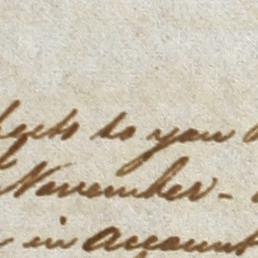 to you
November -
in account